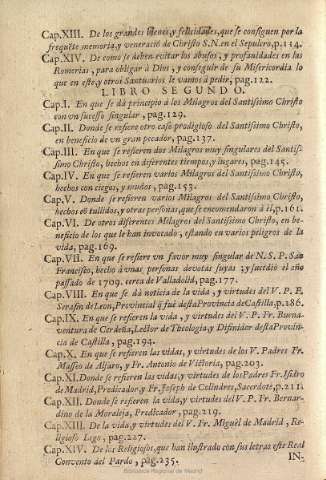 Cap.XIII. De los grandes bienes, y felicidades, que se consiguen por la
frequẽte memoria, y veneraciõ de Christo S.N. en el Sepulcro, p.114.
Cap.XIV. De como se deben evitar los abusos, y profanidades en las
Romerias, para obligar à Dios, y conseguir de su Misericordia lo
que en este, y otros Santuarios le vamos à pedir, pag.122.
LIBRO SEGUNDO.
Cap.I. En que se dà principio à los Milagros del Santissimo Christo
con vn sucesso singular, pag.129.
Cap.II. Donde se refiere otro caso prodigioso del Santissimo Christo,
en beneficio de vn gran pecador, pag.137.
Cap.III. En que se refieren dos Milagros muy singulares del Santis-
simo Christo, hechos en diferentes tiempos, y lugares, pag.145.
Cap.IV. En que se refieren varios Milagros del Santissimo Christo,
hechos con ciegos, y mudos, pag.153.
Cap.V. Donde se refieren varios Milagros del Santissimo Christo,
hechos cõ tullidos, y otras personas, que se encomendaron à èl, p.161.
Cap.VI. De otros diferentes Milagros del Santissimo Christo, en be-
neficio de los que le han invocado, estando en varios peligros de la
vida, pag.169.
Cap.VII. En que se refiere vn favor muy singular de N.S.P. San
Francisco, hecho à vnas personas devotas suyas, y sucediò el año
passado de 1709. cerca de Valladolid, pag.177.
Cap.VIII. En que se dà noticia de la vida, y virtudes del V. P. F.
Serafin de Leon, Provincial q̃ fuè desta Provincia de Castilla, p.186.
Cap.IX. En que se refieren la vida, y virtudes del V. P. Fr. Buena-
ventura de Cerdeña, Lector de Theologia, y Difinidor desta Provin-
cia de Castilla, pag.194.
Cap.X. En que se refieren las vidas, y virtudes de los V. Padres Fr.
Masseo de Alfaro, y Fr. Antonio de Victoria, pag.203.
Cap.XI. Donde se refieren las vidas, y virtudes de los Padres Fr. Isidro
de Madrid, Predicador, y Fr. Joseph de Colindres, Sacerdote, p.211.
Cap.XII. Donde se refieren la vida, y virtudes del V. P. Fr. Bernar-
dino de la Moraleja, Predicador, pag.219.
Cap.XIII. De la vida, y virtudes del V. Fr. Miguel de Madrid, Re-
ligioso Lego, pag.227.
Cap.XIV. De los Religiosos, que han ilustrado con sus letras este Real
Convento del Pardo, pag.235.
IN-
Biblioteca Regional de Madrid